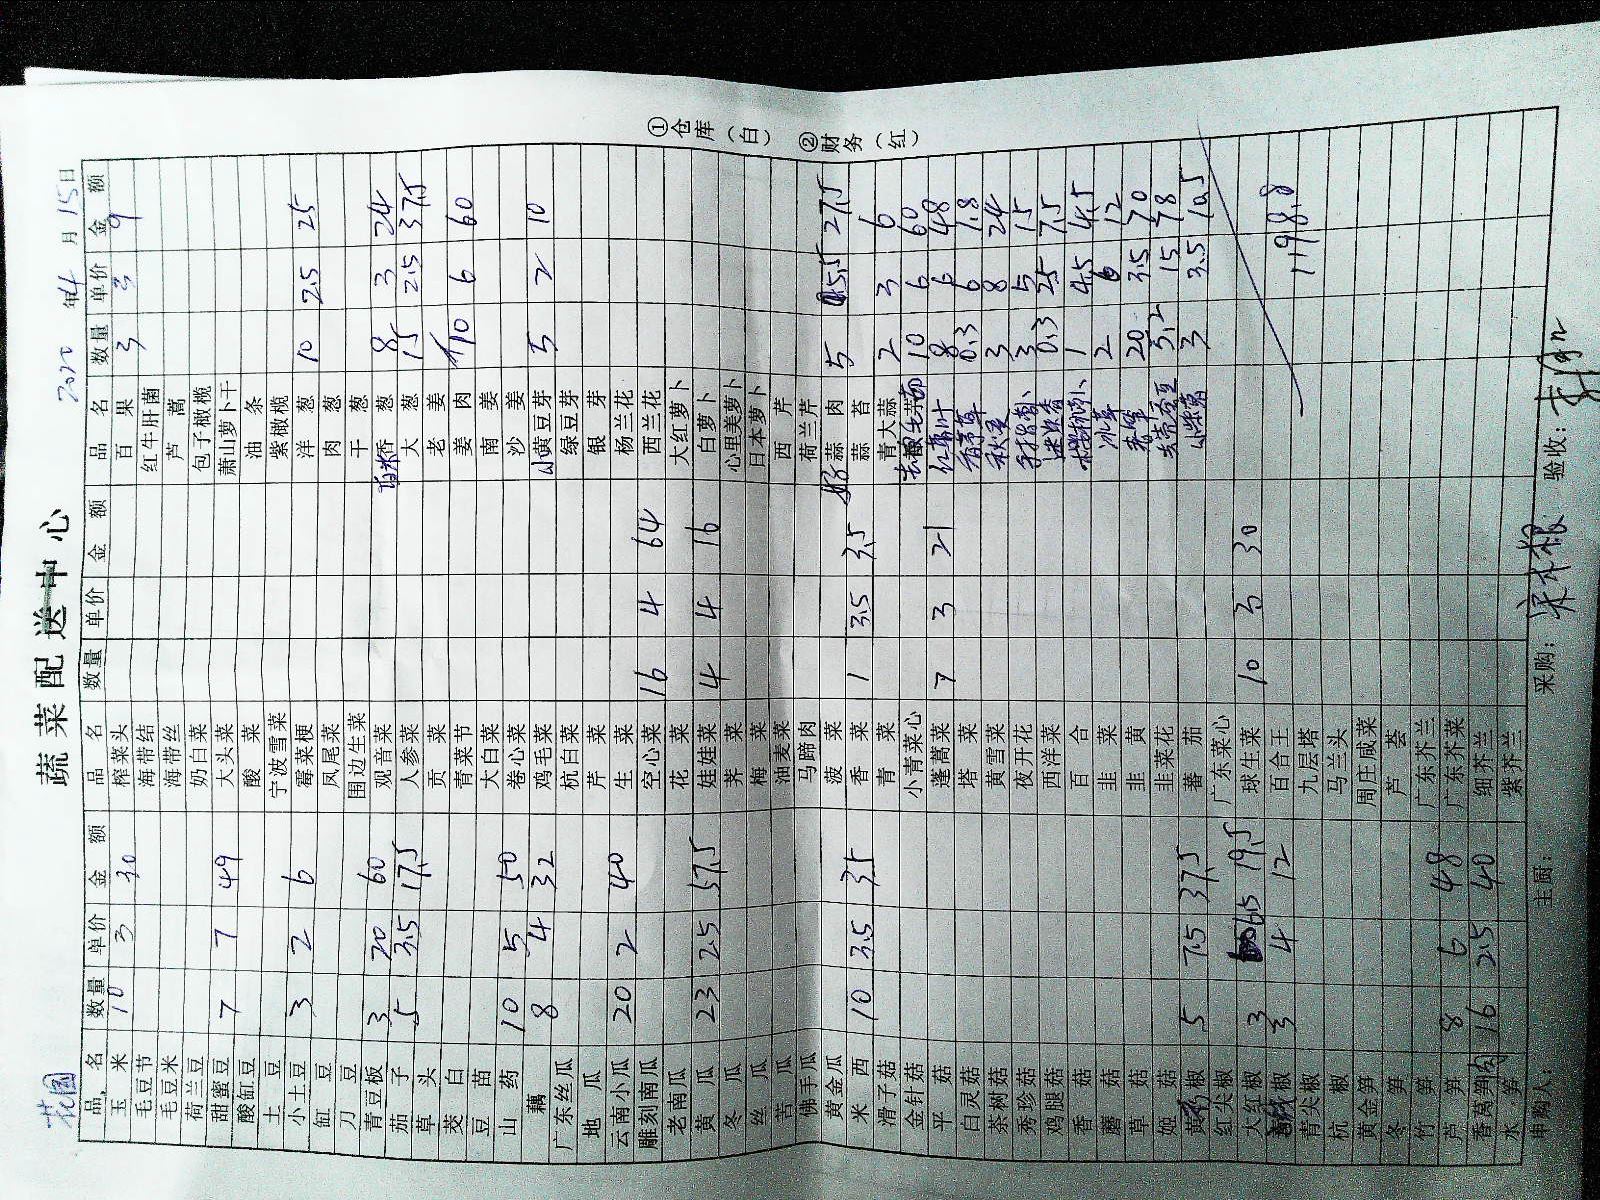 蔬菜配送中心
花园 2020年4月15日
品名 数量 单价 金额 品名 数量 单价 金额 品名 数量 单价 金额
玉米 10 3 30 榨菜头 百果 3 3 9
毛豆节 海带结 红牛肝菌
毛豆米 海带丝 芦蒿
荷兰豆 奶白菜 包子橄榄
甜蜜豆 7 7 49 大头菜 萧山萝卜干
酸缸豆 酸菜 油条
土豆 宁波雪菜 紫橄榄
小土豆 3 2 6 霉菜梗 洋葱 10 2.5 25
缸豆 凤尾菜 肉葱
刀豆 围边生菜 干葱
青豆板 3 20 60 观音菜 香葱 8 3 24
茄子 5 3.5 17.5 人参菜 大葱 15 2.5 37.5
草头 贡菜 老姜
茭白 青菜节 姜肉 10 6 60
豆苗 大白菜 南姜
山药 10 5 50 卷心菜 沙姜
藕 8 4 32 鸡毛菜 黄豆芽 5 2 10
广东丝瓜 杭白菜 绿豆芽
地瓜 芹菜 银芽
云南小瓜 20 2 40 生菜 杨兰花
雕刻南瓜 空心菜 16 4 64 西兰花
老南瓜 花菜 大红萝卜
黄瓜 23 2.5 57.5 娃娃菜 4 4 16 白萝卜
冬瓜 荠菜 心里美萝卜
丝瓜 梅菜 日本萝卜
苦瓜 油麦菜 西芹
佛手瓜 马蹄肉 荷兰芹
黄金瓜 菠菜 蒜肉 5 5.5 27.5
米西 10 3.5 35 香菜 1 3.5 3.5 蒜苔
滑子菇 青菜 青大蒜 2 3 6
金针菇 小青菜心 10 6 60
平菇 蓬蒿菜 7 3 21 8 6 48
白灵菇 塔菜 香茅草 0.3 6 1.8
茶树菇 黄雪菜 秋葵 3 8 24
秀珍菇 夜开花 3 5 15
鸡腿菇 西洋菜 迷迭香 0.3 25 7.5
香菇 百合 1 4.5 4.5
蘑菇 韭菜 冰草 2 6 12
草菇 韭黄 20 3.5 70
姬菇 韭菜花 5.2 15 78
椒 5 7.5 37.5 蕃茄 3 3.5 10.5
红尖椒 广东菜心
大红椒 3 6.5 19.5 球生菜 10 3 30
椒 3 4 12 百合王
青尖椒 九层塔 1198.8
杭椒 马兰头
黄金笋 周庄咸菜
冬笋 芦荟
竹笋 广东芥兰
芦笋 8 6 48 广东芥菜
香莴笋肉 16 2.5 40 细芥兰
水笋 紫芥兰
申购人： 主厨： 采购： 验收：
①仓库（白） ②财务（红）